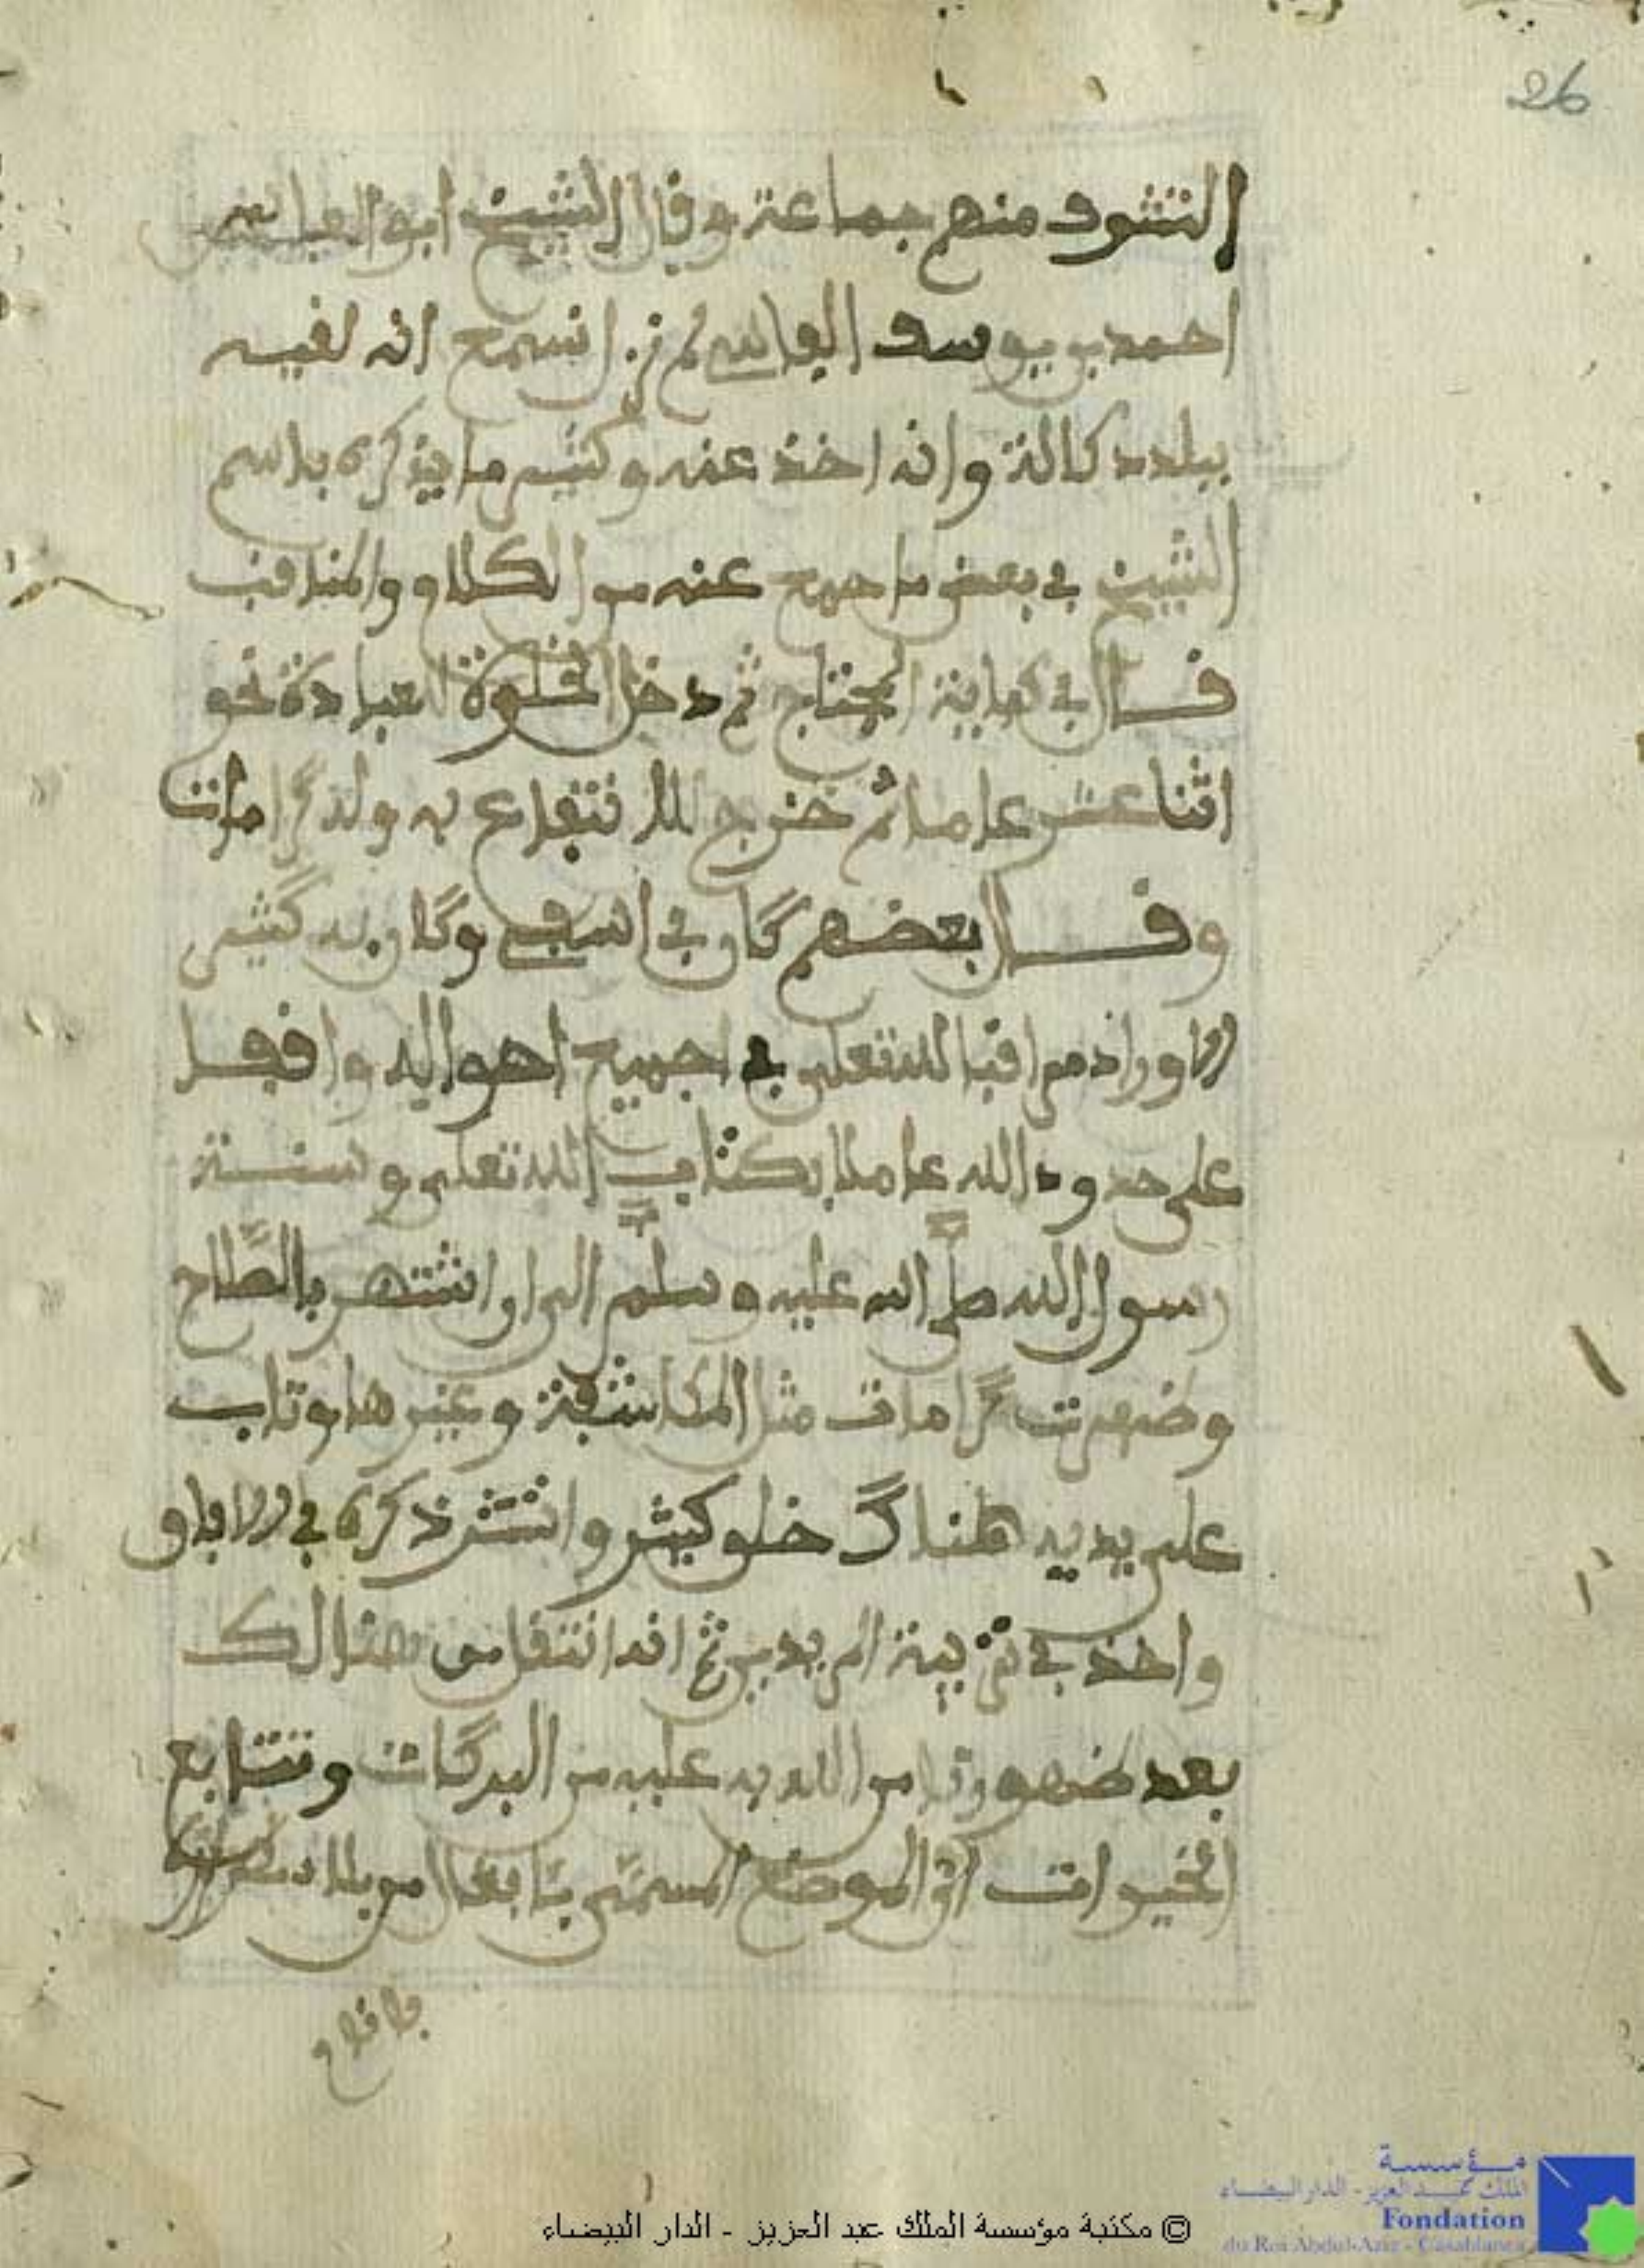 26
التشوف منهم جماعة وقال الشيخ ابو العباس
احمد بن يوسف الفاسي لم نزل نسمع انه لقيه
ببلد دكالة وانه اخذ عنه وكثير ما يذكره باسم
الشيخ في بعض ما جمع عنه من الكلام والمناقب
قال في كفاية المحتاج ثم دخل الخلوة للعبادة نحو
اثنا عشر عاما ثم خرج للانتفاع به وله كرامات
وقال بعضهم كان في اسفي وكان به كثير
الاوراد مراقبا لله تعلى في اجميع احواله واقفا
على حدود الله عاملا بكتاب الله تعلى وسنة
رسول الله صلى الله عليه وسلم الى ان اشتهر بالصلاح
وضهرت كرامات مثل المكاشفة وغيرها وتاب
على يديه هناك خلق كثير وانتشر ذكره في الافاق
واخذ في تربية المريدين ثم انه انتقل من هنالك
بعد ضهور ما من الله به عليه من البركات وتتابع
الخيرات الى الموضع المسمى بئابغال من بلاد
© مكتبة مؤسسة الملك عبد العزيز - الدار البيضاء
مؤسسة
الملك عبد العزيز - الدار البيضاء
Fondation
du Roi Abdul-Aziz - Casablanca